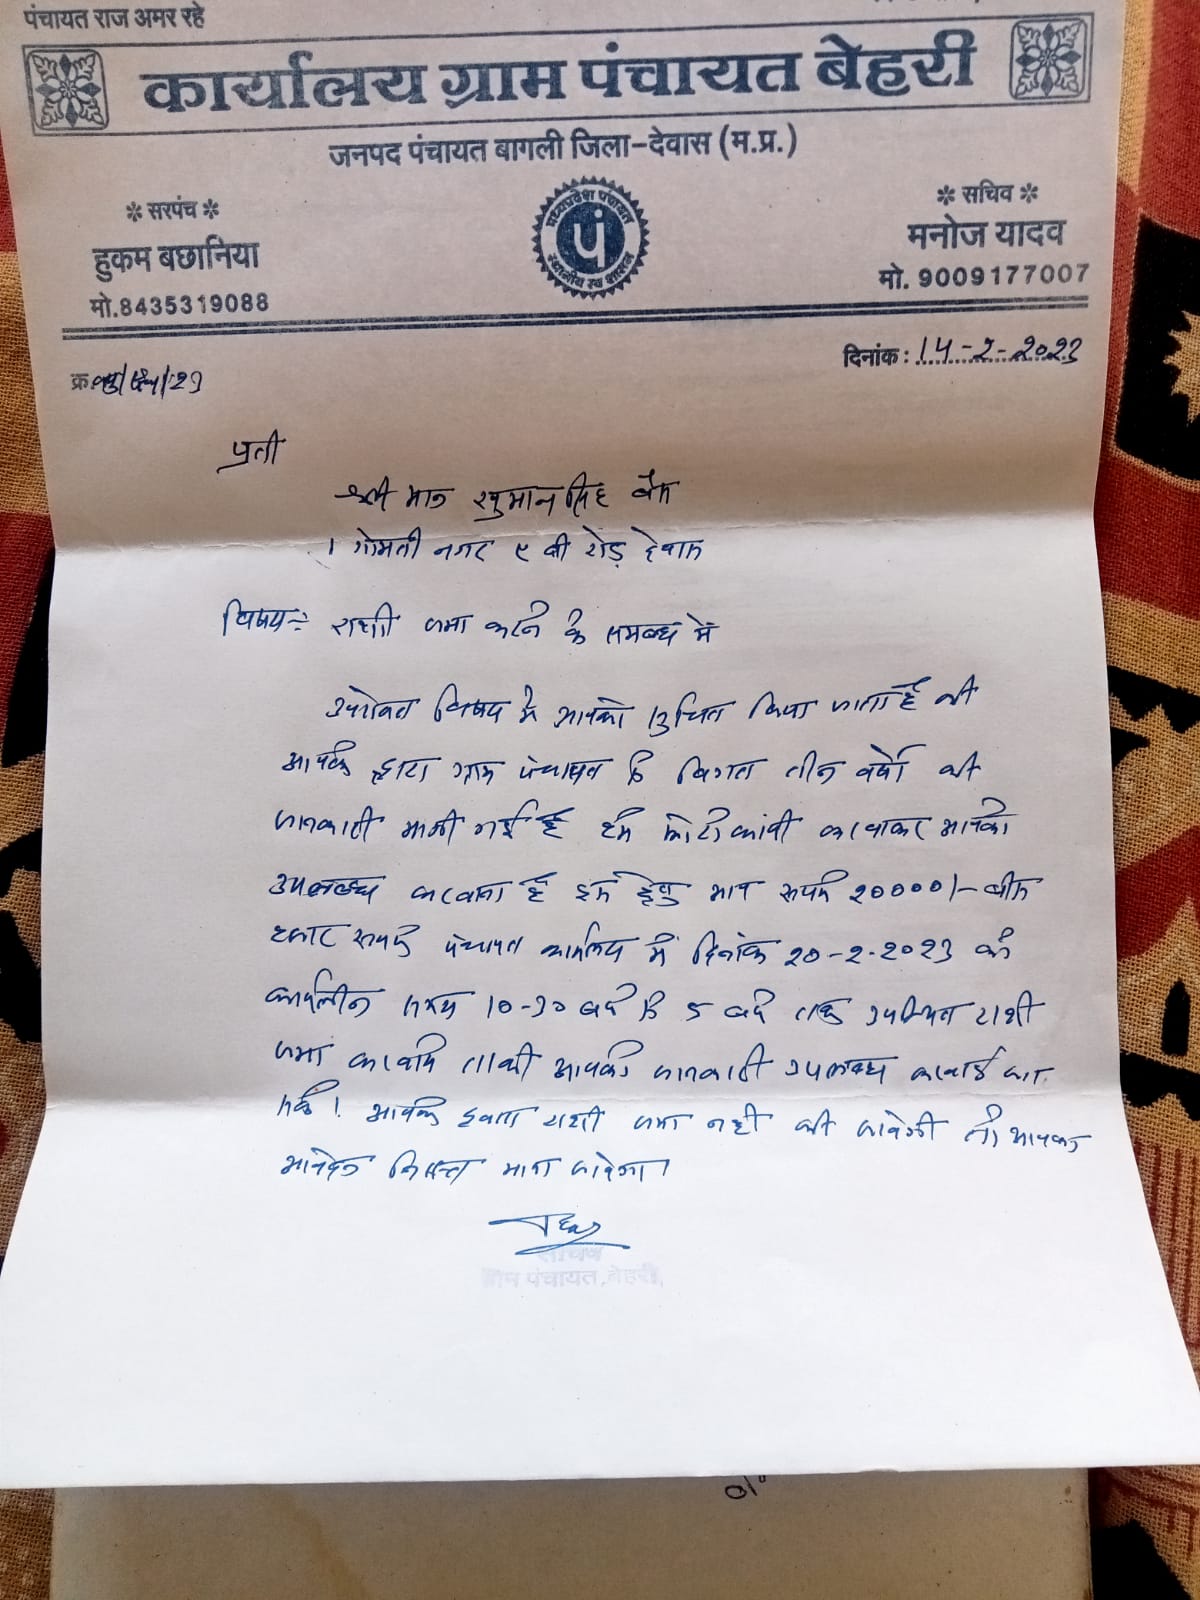 पंचायत राज अमर रहे
कार्यालय ग्राम पंचायत बेहरी
जनपद पंचायत बागली जिला-देवास (म.प्र.)
* सरपंच *
हुकम बछानिया
मो.8435319088
मध्यप्रदेश पंचायत
पं
स्थानीय स्व शासन
* सचिव *
मनोज यादव
मो. 9009177007
क्र. /23
दिनांक : 14-2-2023
प्रती
श्री मान सिंह बैस
गोमती नगर ए बी रोड़ देवास
विषय:- राशी जमा करने के समबन्ध में
उपरोक्त विषय में आपको सुचित किया जाता है की
आपके द्वारा ग्राम पंचायत के विगत तीन वर्षो की
जानकारी मांगी गई है फोटोकांपी करवाकर आपको
उपलब्ध करवाना है इस हेतु आप रूपये 20000/- बीस
हजार रूपये पंचायत कार्यालय में दिनांक 20-2-2023 को
कार्यालीन समय 10-30 बजे से 5 बजे तक उपस्थित राशी
जमा करवाये ताकी आपको जानकारी उपलब्ध करवाई जा
सके। आपके द्वारा राशी जमा नही की जावेगी तो आपका
आवेदन निरस्त माना जावेगा।
सचिव
ग्राम पंचायत, बेहरी